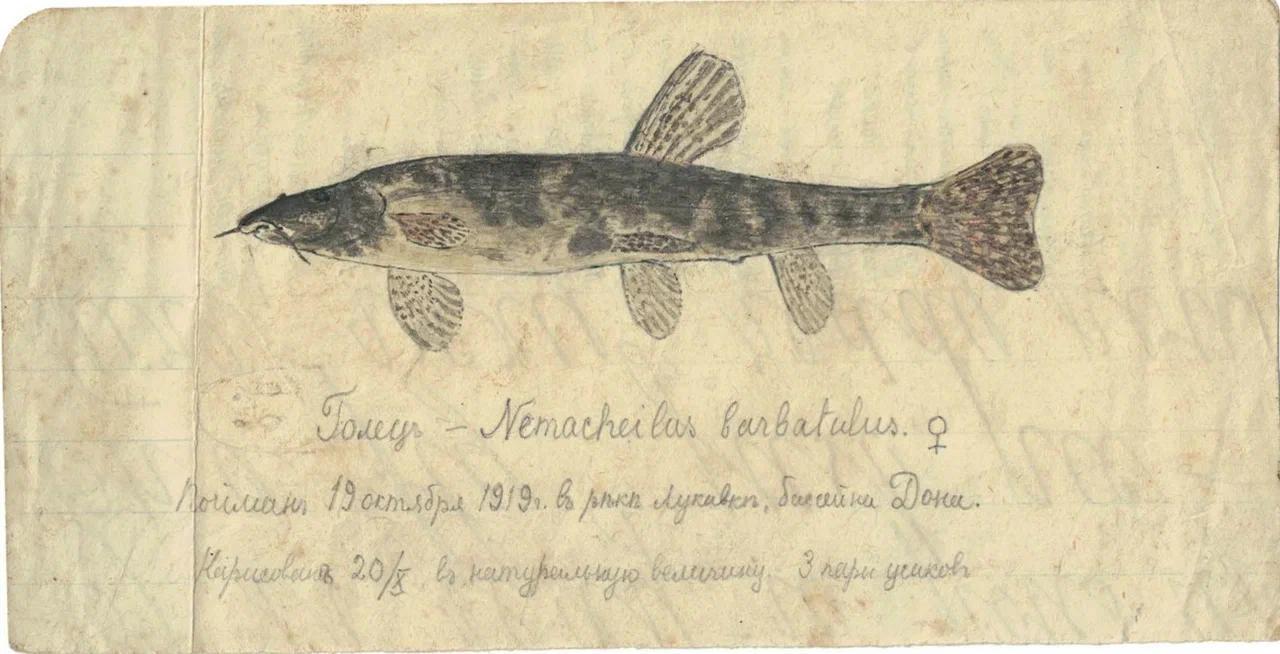 Голецъ — Nemacheilus barbatulus. ♀
Пойманъ 19 октября 1919г. въ рѣкѣ Лукавкѣ, бассейна Дона.
Нарисованъ 20/X въ натуральную величину. 3 пары усиковъ